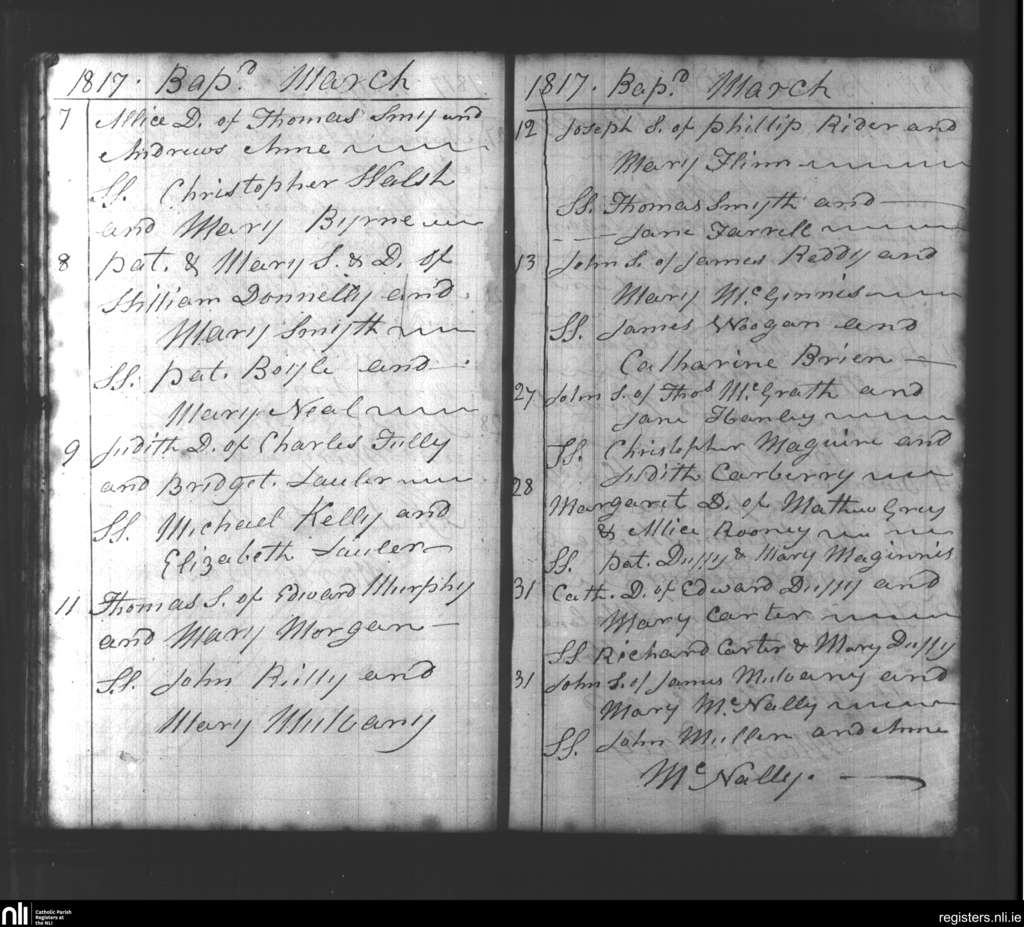 1817. Bap.d March
7 Allice D. of Thomas Smy and
Andrews Anne
SS. Christopher Walsh
and Mary Byrne
8 Pat. & Mary S. & D. of
William Donnelly and
Mary Smyth
SS. Pat. Boyle and
Mary Neal
9 Judith D. of Charles Tully
and Bridget. Lauler
SS. Michael Kelly and
Elizabeth Lauler
11 Thomas S. of Edward Murphy
and Mary Morgan
SS. John Rilly and
Mary Mulvany
1817. Bap.d March
12 Joseph S. of Phillip Rider and
Mary Flinn
SS. Thomas Smyth and
Jane Farrell
13 John S. of James Reddy and
Mary McGinnis
SS. James Woogan and
Catharine Brien
27 John S. of Thos McGrath and
Jane Hanley
SS. Christopher Maguire and
Judith Carberry
28
Margaret D. of Mathew Grey
& Allice Rooney
SS. Pat. Duffy & Mary Maginnis
31 Cath. D. of Edward Duffy and
Mary Carter
SS Richard Carter & Mary Duffy
31 John S. of James Mulvany and
Mary McNally
SS. John Mullen and Anne
McNally.
nli Catholic Parish
Registers at
the NLI
registers.nli.ie